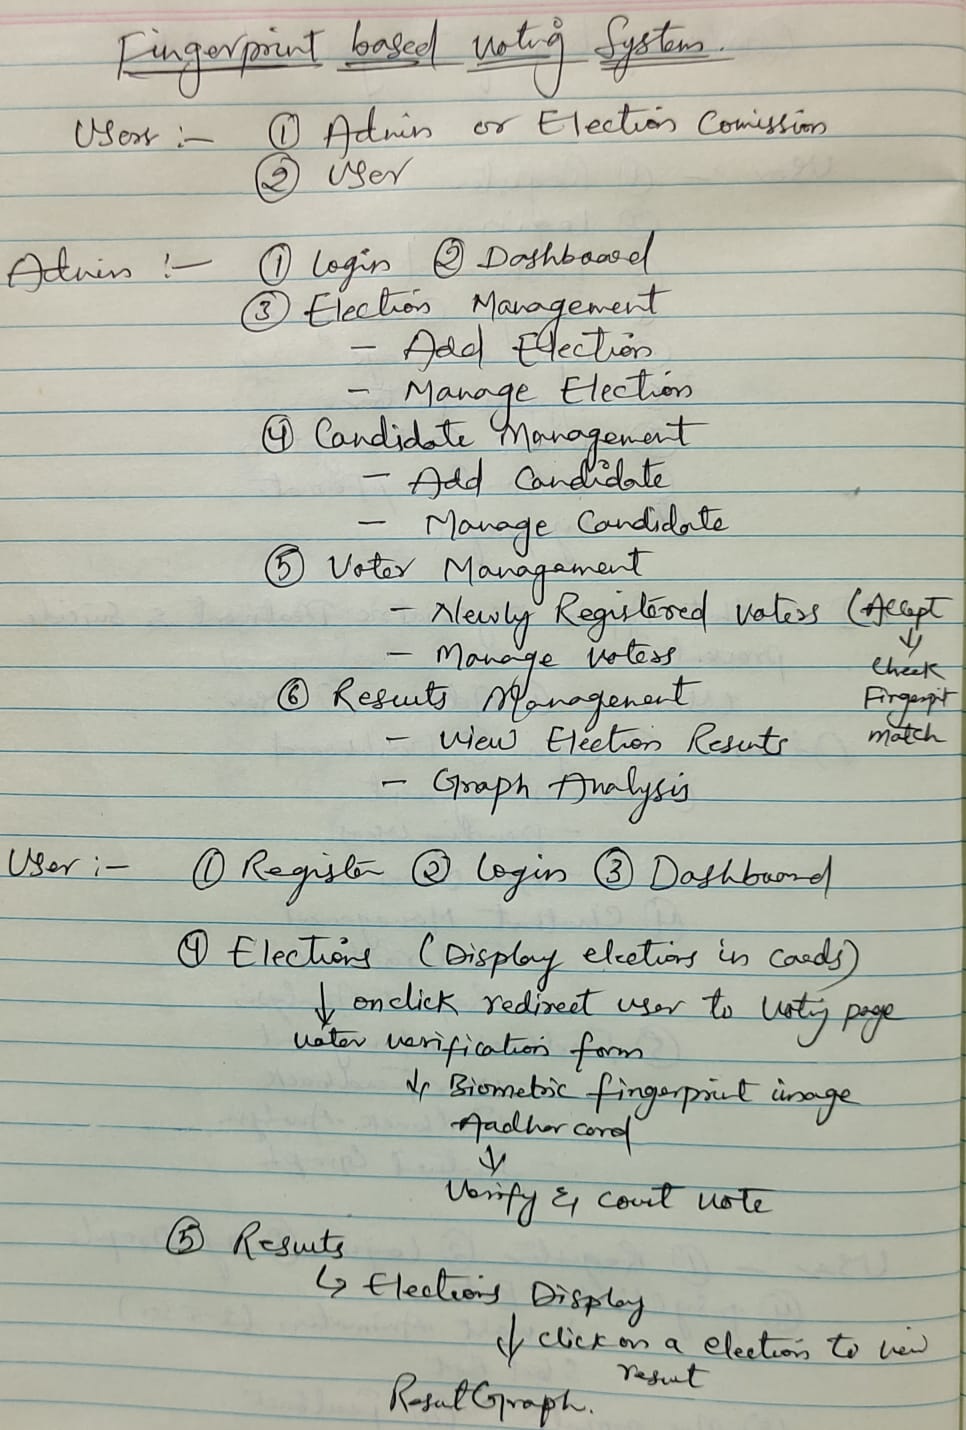 Fingerprint based voting System.
Users :- ① Admin or Election Comission
② User
Admin :- ① Login ② Dashboard
③ Election Management
- Add Election
- Manage Election
④ Candidate Management
- Add Candidate
- Manage Candidate
⑤ Voter Management
- Newly Registered voters (Accept
↓
- Manage voters
check
Fingerprit
match
⑥ Results Management
- view Election Results
- Graph Analysis
User :- ① Register ② Login ③ Dashboard
④ Elections (Display elections in cards)
↓ onclick redirect user to voting page
voter verification form
↓ Biometric fingerprint image
Aadhar card
↓
Verify & count vote
⑤ Results
↳ Elections Display
↓ click on a election to view
result
Result Graph.